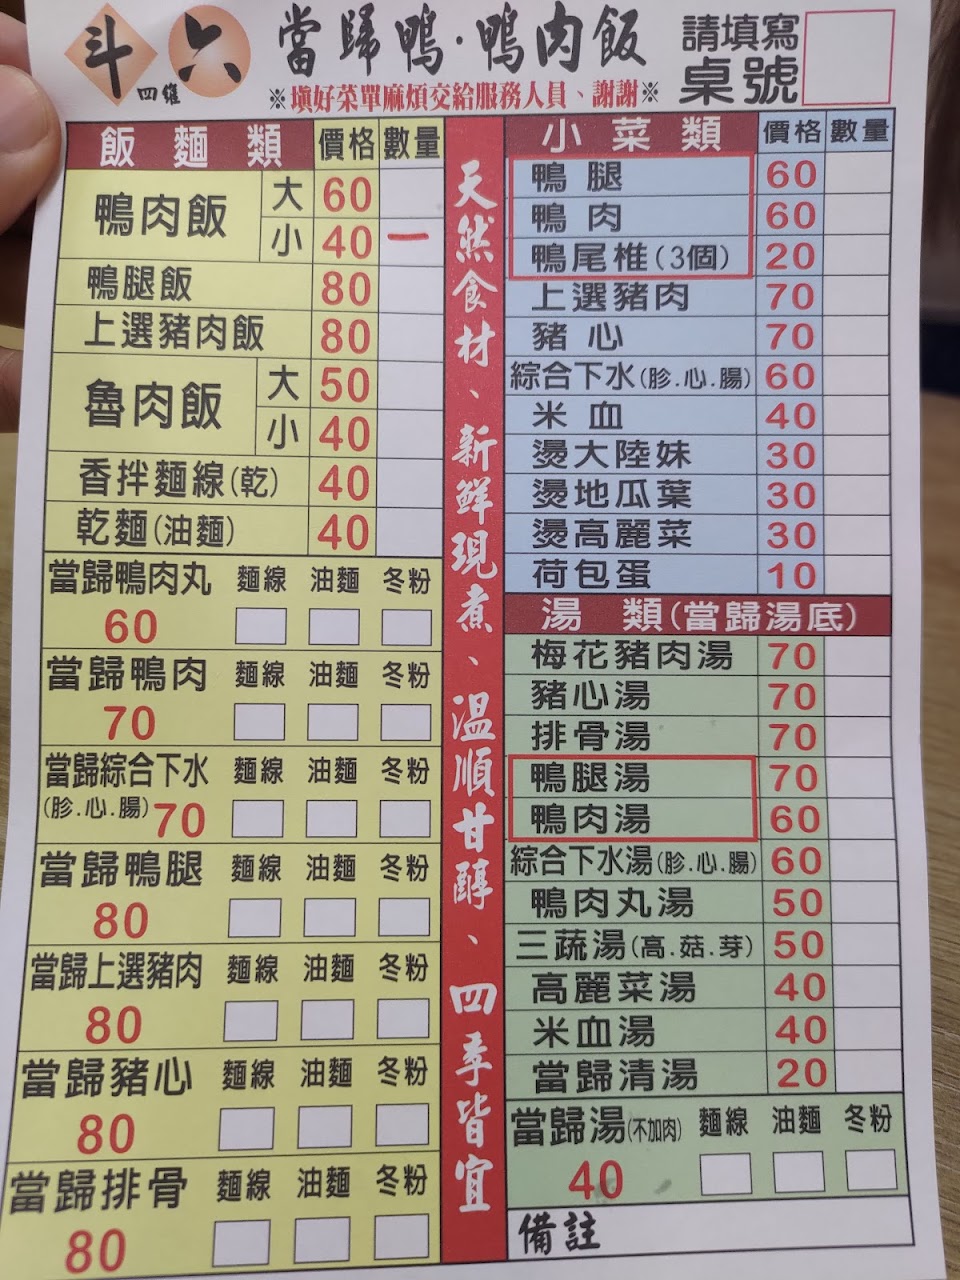 斗六
四維
當歸鴨·鴨肉飯
※填好菜單麻煩交給服務人員、謝謝※
請填寫
桌號
飯麵類 價格 數量
鴨肉飯 大 60
小 40 一
鴨腿飯 80
上選豬肉飯 80
魯肉飯 大 50
小 40
香拌麵線(乾) 40
乾麵(油麵) 40
當歸鴨肉丸 麵線 油麵 冬粉
60
當歸鴨肉 麵線 油麵 冬粉
70
當歸綜合下水 麵線 油麵 冬粉
(胗.心.腸) 70
當歸鴨腿 麵線 油麵 冬粉
80
當歸上選豬肉 麵線 油麵 冬粉
80
當歸豬心 麵線 油麵 冬粉
80
當歸排骨 麵線 油麵 冬粉
80
天然食材、新鮮現煮、溫順甘醇、四季皆宜
小菜類 價格 數量
鴨腿 60
鴨肉 60
鴨尾椎(3個) 20
上選豬肉 70
豬心 70
綜合下水(胗.心.腸) 60
米血 40
燙大陸妹 30
燙地瓜葉 30
燙高麗菜 30
荷包蛋 10
湯類(當歸湯底)
梅花豬肉湯 70
豬心湯 70
排骨湯 70
鴨腿湯 70
鴨肉湯 60
綜合下水湯(胗.心.腸) 60
鴨肉丸湯 50
三蔬湯(高.菇.芽) 50
高麗菜湯 40
米血湯 40
當歸清湯 20
當歸湯(不加肉) 麵線 油麵 冬粉
40
備註